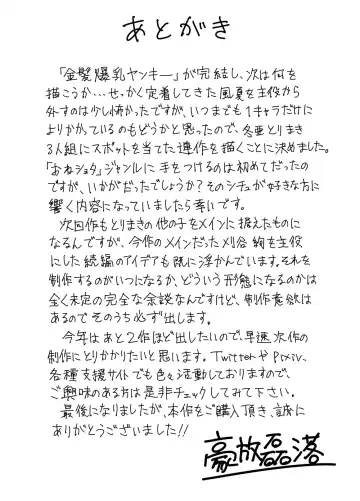 あとがき
「金髪爆乳ヤンキー」が完結し、次は何を
描こうか…せっかく定着してきた風夏を主役から
外すのは少し怖かったですが、いつまでも1キャラだけに
よりかかっているのもどうかと思ったので、各更とりまき
3人組にスポットを当てた連作を描くことに決めました。
「おねショタ」ジャンルに手をつけるのは初めてだったの
ですが、いかがだったでしょうか?そのシチュが好きな方に
響く内容になっていましたら幸いです。
次回作もとりまきの他の子をメインに据えたものに
なるんですが、今作のメインだった刈谷 絢を主役
にした続編のアイデアも既に浮かんでいます。それを
制作するのがいつになるか、どういう形態になるのかは
全く未定の完全な余談なんですけど、制作意欲は
あるのでそのうち必ず出します。
今年はあと2作ほど出したいので、早速次作の
制作にとりかかりたいと思います。Twitterやpixiv、
各種支援サイトでも色々活動しておりますので、
ご興味のある方は是非チェックしてみて下さい。
最後になりましたが、本作をご購入頂き、誠に
ありがとうございました!!
豪放磊落